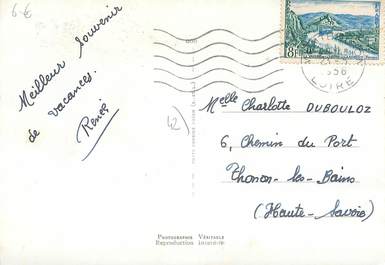 6-€
Meilleur Souvenir
de vacances.
René
42
8F
1956
LOIRE
Melle Charlotte DUBOULOZ
6, Chemin du Port
Thonon-les-Bains
(Haute-Savoie)
PHOTOGRAPHIE VÉRITABLE
Reproduction interdite